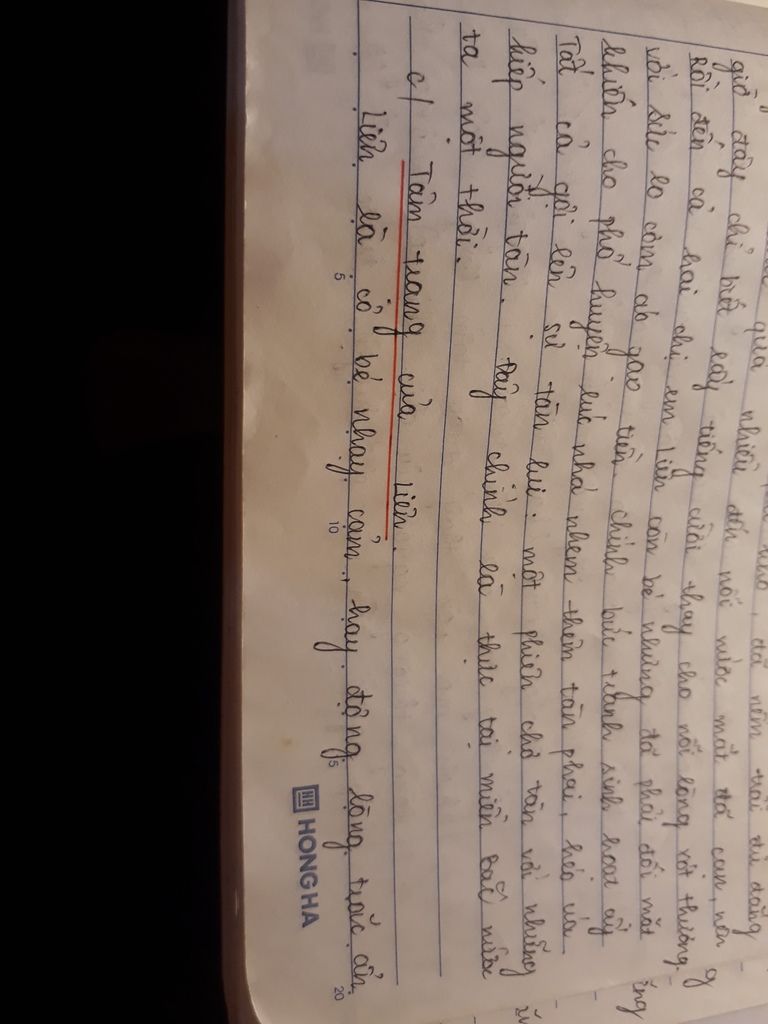 quá nhiều đến nỗi nước mắt đã cạn, nên
giờ đây chỉ biết lấy tiếng cười thay cho nỗi lòng xót thương.
Rồi đến cả hai chị em Liên còn bé nhưng đã phải đối mặt
với sức lo cơm áo gạo tiền chính bức tranh sinh hoạt ấy
khiến cho phố huyện lúc nhá nhem thêm tàn phai, héo úa
Tất cả gợi lên sự tàn lụi: một phiên chợ tàn với những
kiếp người tàn. Đây chính là thực tại miền Bắc nước
ta một thời.
c/ Tâm trạng của Liên.
Liên là cô bé nhạy cảm, hay động lòng trắc ẩn
5
10
5
20
HH HONG HA